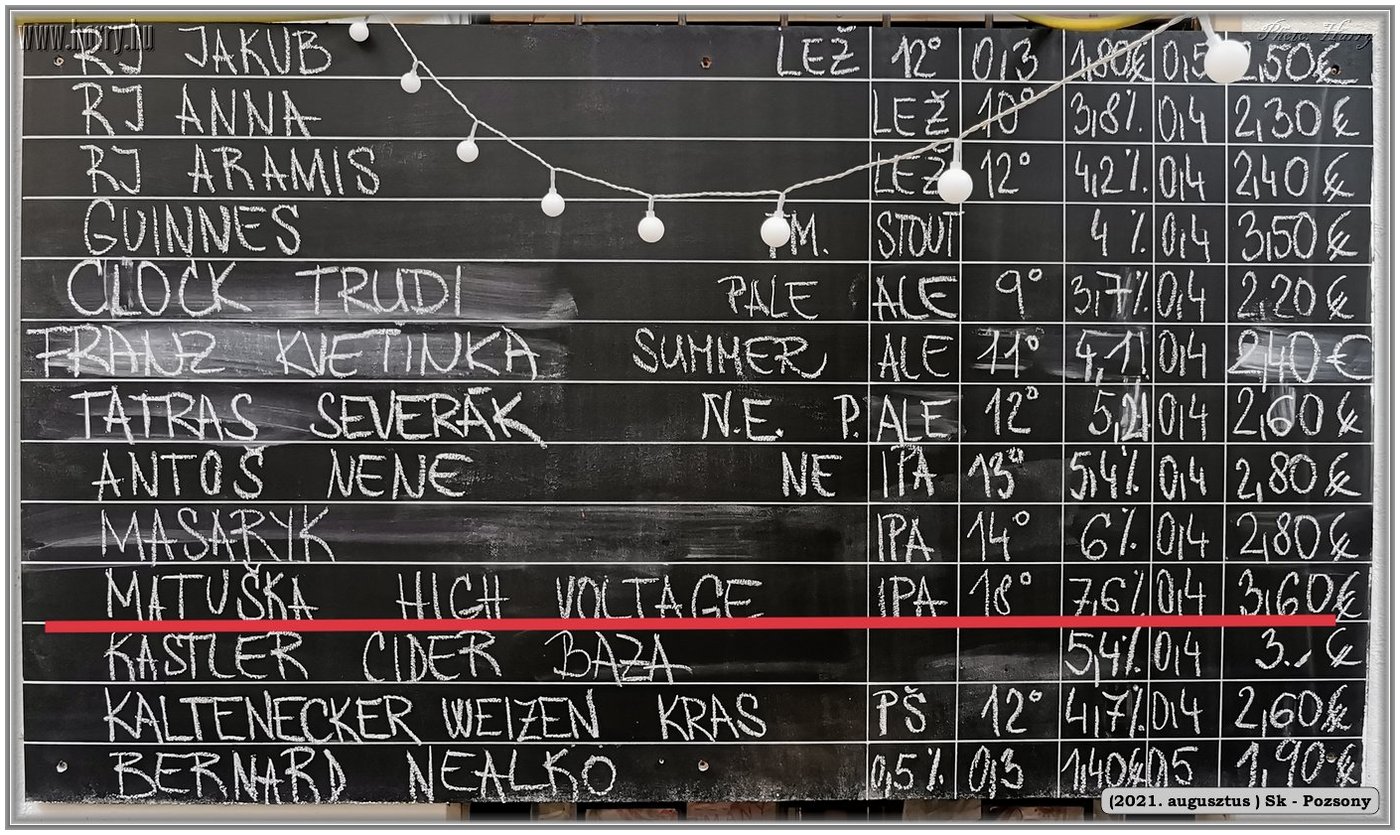 www.horry.hu
Photo: Horry
RJ JAKUB LEŽ 12° 0,3 1,80€ 0,5 2,50€
RJ ANNA LEŽ 10° 3,8% 0,4 2,30€
RJ ARAMIS LEŽ 12° 4,2% 0,4 2,40€
GUINNES TM. STOUT 4% 0,4 3,50€
CLOCK TRUDI PALE ALE 9° 3,7% 0,4 2,20€
FRANZ KVETINKA SUMMER ALE 11° 4,1% 0,4 2,40€
TATRAS SEVERÁK N.E. P. ALE 12° 5,2% 0,4 2,60€
ANTOŠ NENE NE IPA 13° 5,4% 0,4 2,80€
MASARYK IPA 14° 6% 0,4 2,80€
MATUŠKA HIGH VOLTAGE IPA 18° 7,6% 0,4 3,60€
KASTLER CIDER BAZA 5,4% 0,4 3.- €
KALTENECKER WEIZEN KRAS PŠ 12° 4,7% 0,4 2,60€
BERNARD NEALKO 0,5% 0,3 1,40€ 0,5 1,90€
(2021. augusztus ) Sk - Pozsony